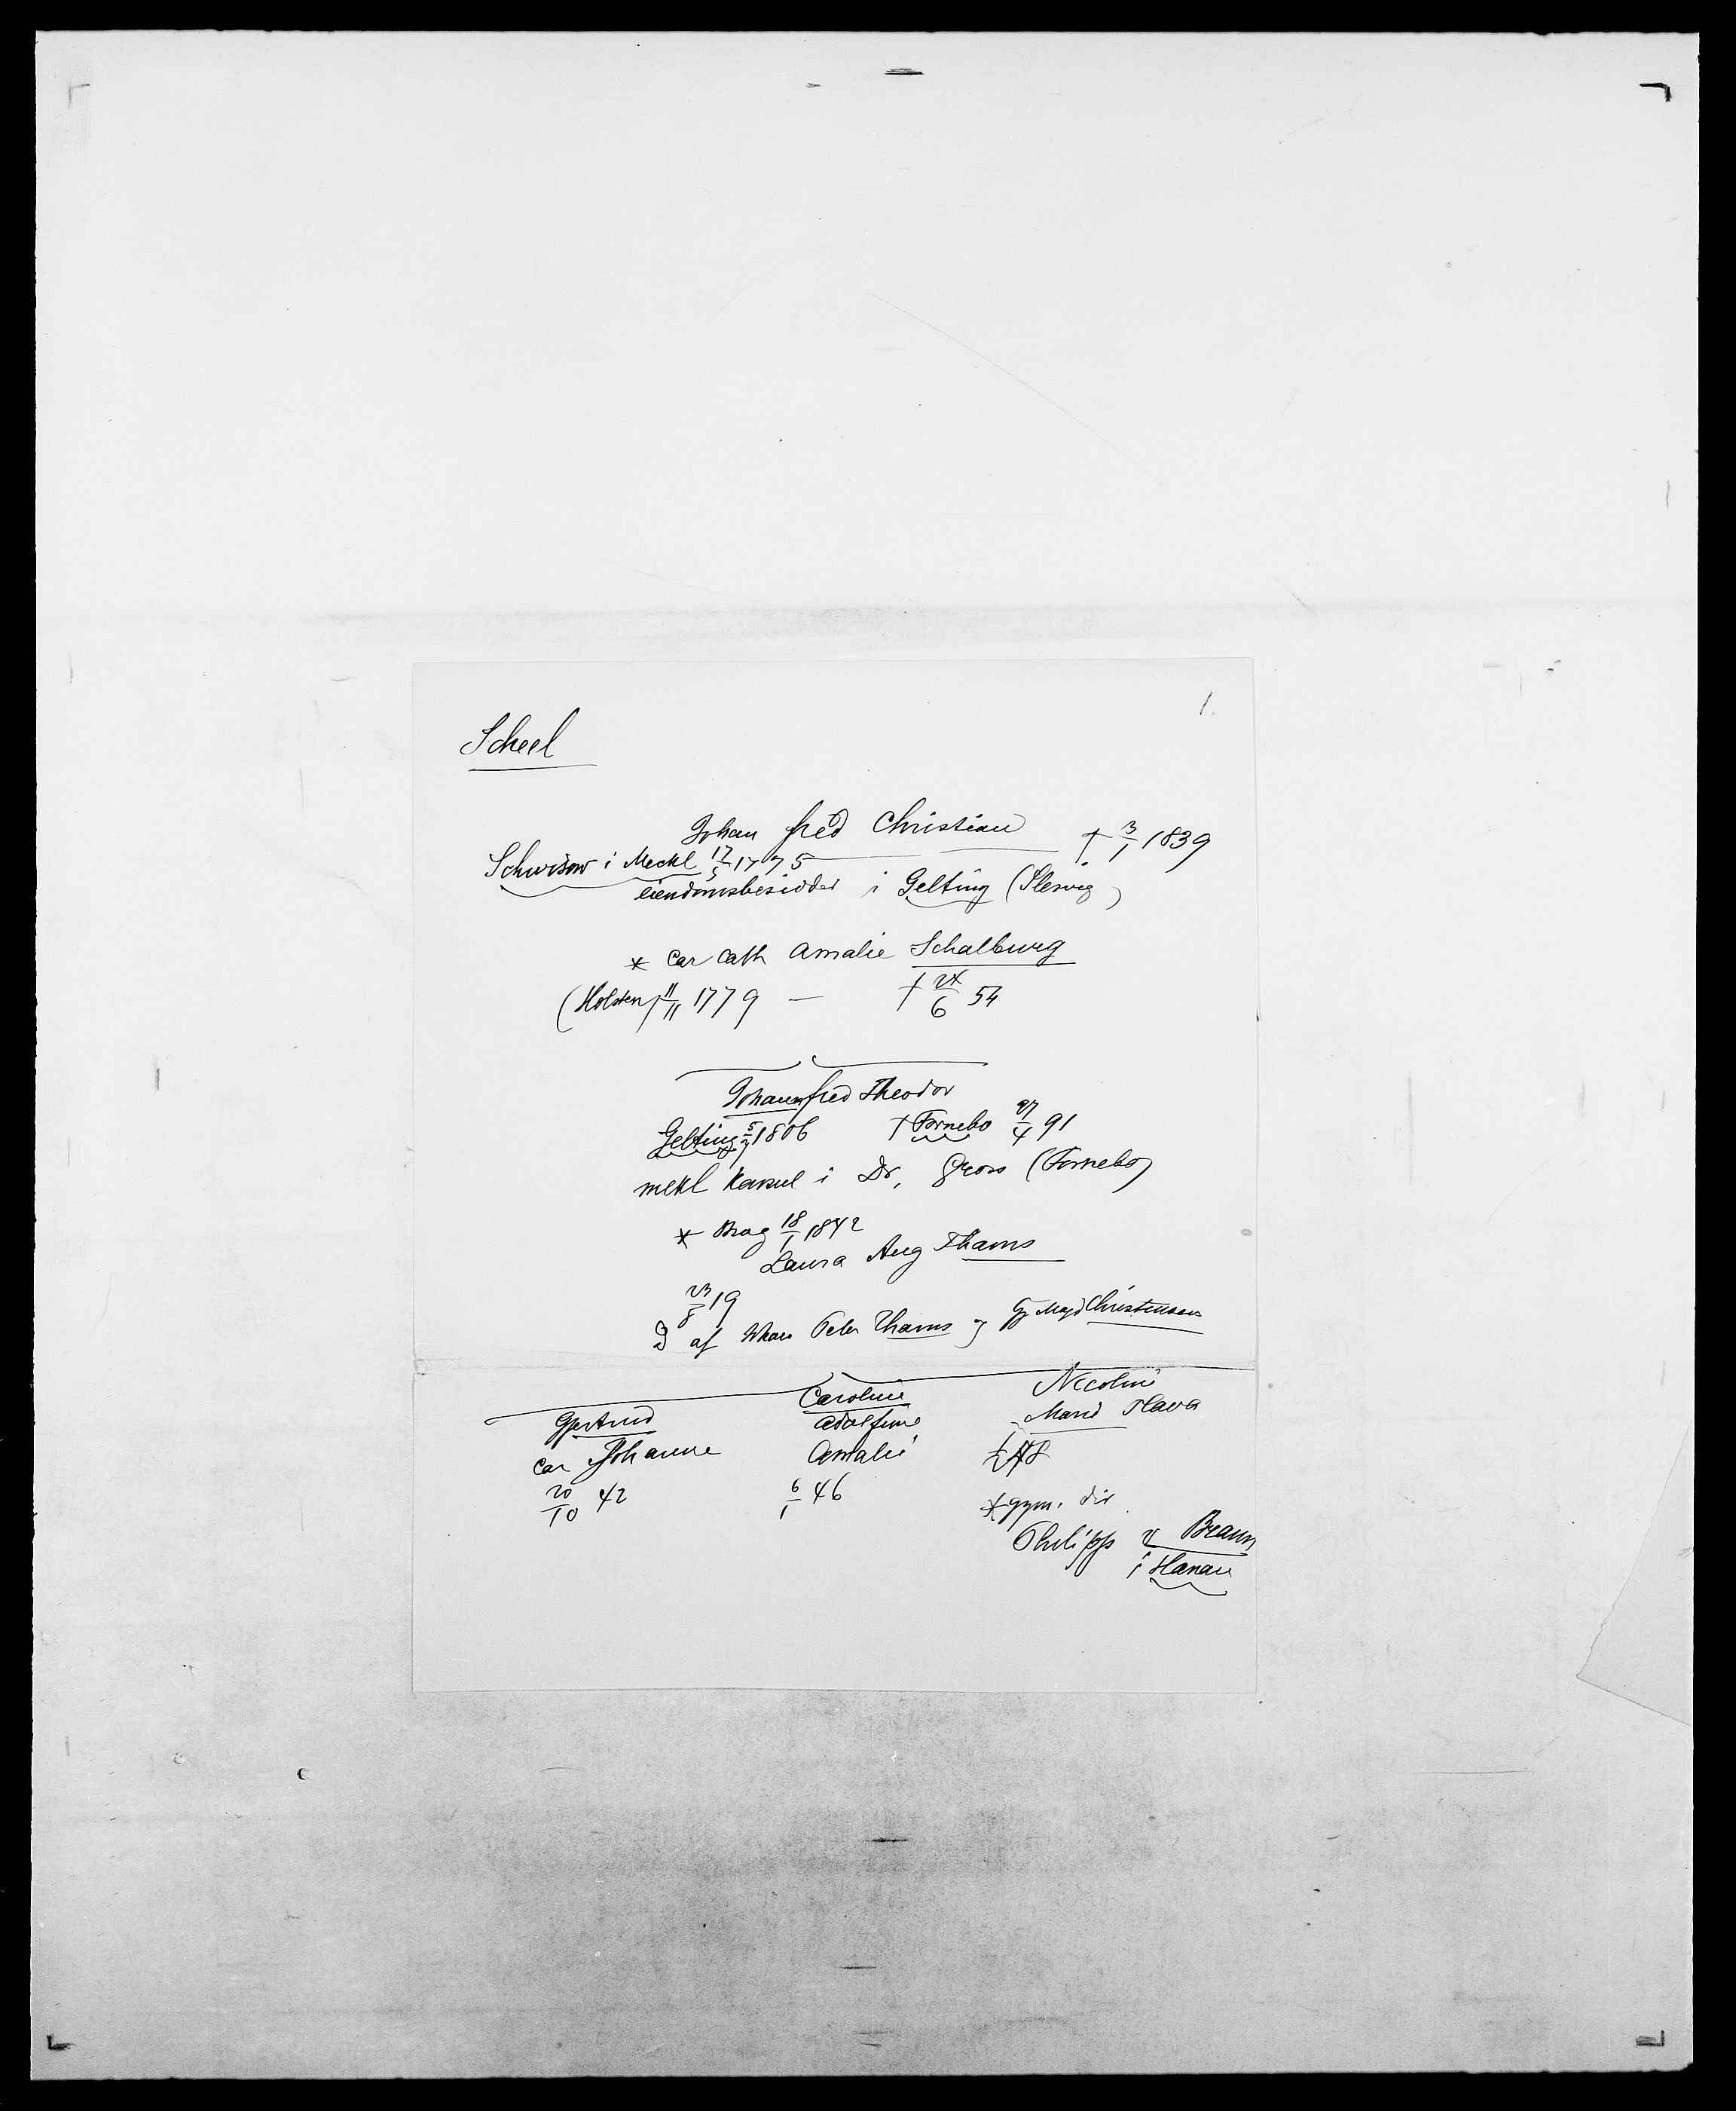 1.
Scheel
Johan fred Christian † 3/1 1839
Schwisow i Meckl 17/5 1775
eiendomsbesidder i Gelting (Slesvig)
* Car Cath Amalie Schalburg
(Holsten) 11/11 1779 — † 24/6 54
Johann fred Theodor
Gelting 5/7 1806 † Fornebo 27/4 91
mekl Konsul i Dr, Gross (Fornebo)
* Brag 18/1 1842
Laura Aug Thams
23/8 19
D af Peter Thams og Christensen
Gjertrud Caroline Nicoline
Car Johanne Adolfine Marie Flava
20/10 42 Amalie
6/1 46 * gym. dir
Philipp v Braun
i Hanau